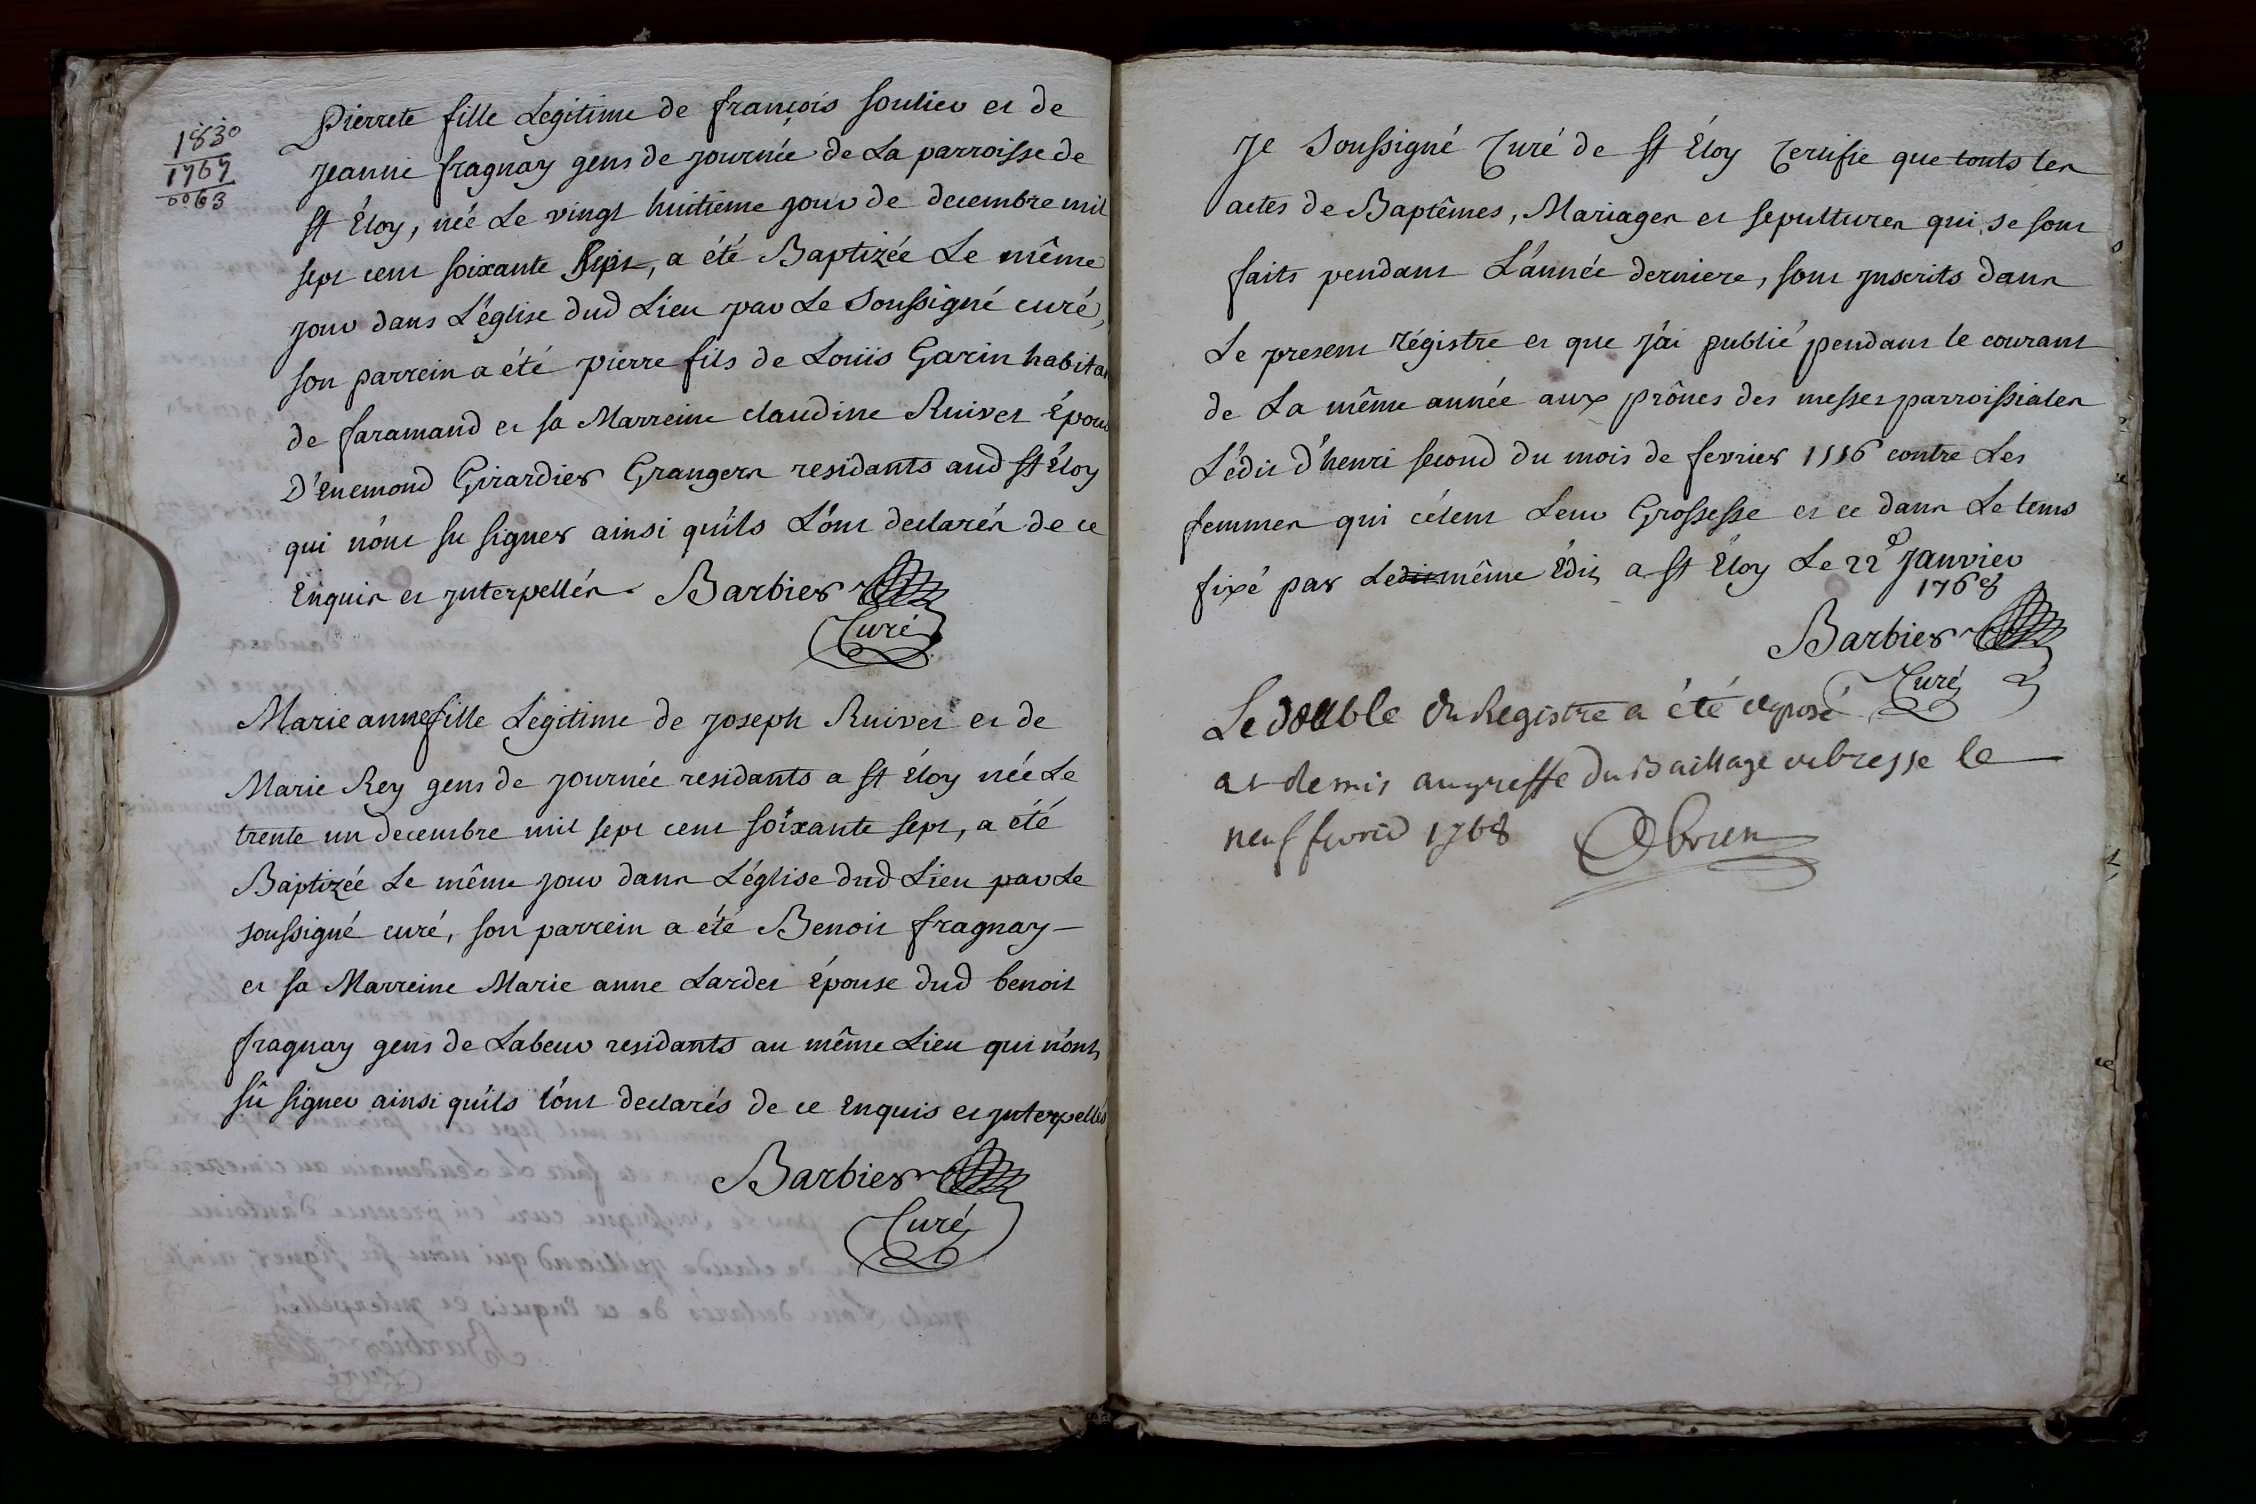 1830
1767
0063
Pierrete fille Legitime de françois soulier et de
jeanne fragnay gens de journée de La parroisse de
st Éloy, née Le vingt huitieme jour de decembre mil
sept cent soixante sept, a été Baptizée Le même
jour dans L'église dud Lieu par Le soussigné curé,
son parrein a été pierre fils de Louis Garin habitan
de faramand et sa Marreine claudine Ruivet Épous
D'Enemond Girardier Grangers residants aud st Éloy
qui n'ont su signer ainsi qu'ils L'ont declarés de ce
Enquis et jnterpellés. Barbier
Curé
Marie anne fille Légitime de joseph Ruivet et de
Marie Rey gens de journée residants a st Éloy née Le
trente un decembre mil sept cent soixante sept, a été
Baptizée Le même jour dans L'église dud Lieu par Le
soussigné curé, son parrein a été Benoit fragnay
et sa Marreine Marie anne Lardet Épouse dud benoit
fragnay gens de Labeur residants au même Lieu qui n'ont
sû signer ainsi qu'ils l'ont declarés de ce enquis et jnterpellés
Barbier
Curé
Je soussigné Curé de st Éloy Certifie que touts les
actes de Baptêmes, Mariages et sepultures qui se sont
faits pendant L'année derniere, sont jnscrits dans
Le present régistre et que j'ai publié pendant le courant
de La même année aux prônes des messes parroissiales
L'édit d'henri second du mois de fevrier 1556 contre Les
femmes qui célent Leur Grossesse et ce dans Le tems
fixé par Ledit même Édit a st Éloy Le 22e janvier
1768
Barbier
Curé
Le double du Registre a été deposé
et remis au greffe du Bailliage de bresse le
neuf fevrier 1768 Obrien